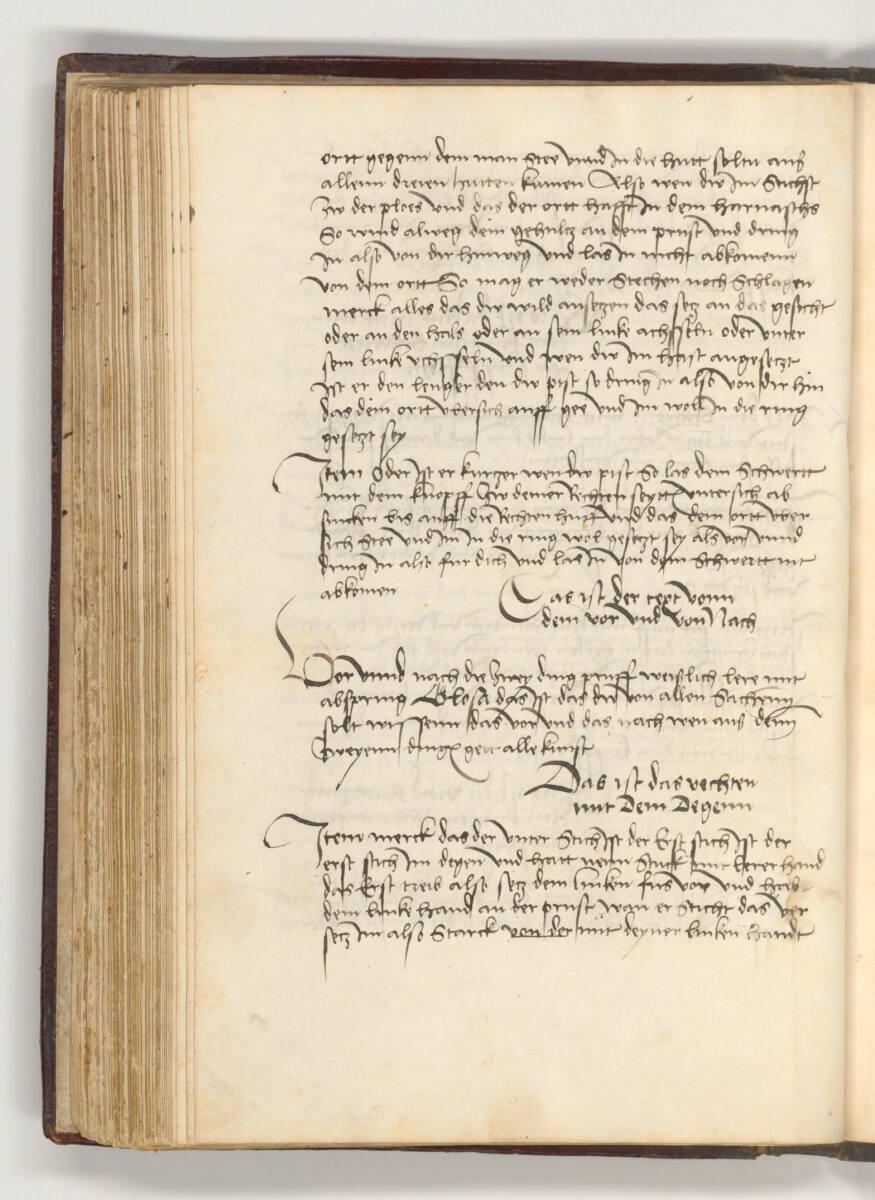 ortt gegenn dem man Stee vnnd In die hutt soltu aus
allenn dreien hutten kumen Also wen dw Im Stichst
Zw der ploes vnd das der ortt hafft In dem harnaschs
So wind alweg dein gehultz an dein prust vnd dring
In also von dir hinweg vnd las In nicht abkomenn
von dem ortt So mag er weder Stechen noch Schlagen
merck alles das dw wild ansetzen das setz an das gesicht
oder an den hals oder an sein linke achsseln oder vnter
sein linke vchsseln vnd wen dw Im hast angesetzt
Ist er den lenger den dw pist so dring In also von dir hin
das dein ortt vbersich auff gee vnd Im woll In die ring
gesetzt sey
Item Oder Ist er kurtzer wen dw pist So las dein Schwertt
mit dem knopff Zw deiner Rechten seytten vntersich ab
sincken bis auff die Rechten huff vnd das dein ortt vber
sich Stee vnd Im In die ring wol gesetzt sey als vor vnnd
dring In also fur dich vnd las In von dem Schwertt nit
abkomen
Das ist der text vonn
dem vor vnd von Nach
Vor vnnd nach die Zwey ding pruff weißlich lere mit
abspring Glosa das Ist das dw von allen Sachenn
solt wissenn das vor vnd das nach wen aus denn
Zweyenn dingen gett alle kunst
Das ist das vechten
mit Dem Degenn
Item merck das der vnter Stich Ist der Erst stich Ist der
erst stich Im degen vnd hatt neun Stuck mit lerer hand
das Erst treib also setz dein lincken fus vor vnd hab
dein linke hand an der prust wan er Sticht das ver
setz Im also Starck von der mit deyner lincken Handt